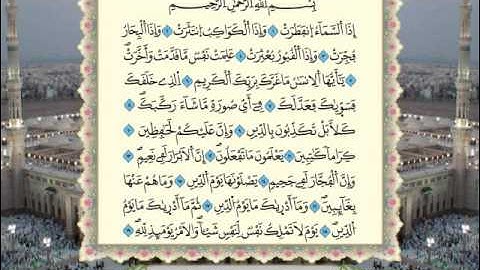 بِسْمِ اللَّهِ الرَّحْمَٰنِ الرَّحِيمِ
إِذَا السَّمَاءُ انفَطَرَتْ ۝ وَإِذَا الْكَوَاكِبُ انتَثَرَتْ ۝ وَإِذَا الْبِحَارُ
فُجِّرَتْ ۝ وَإِذَا الْقُبُورُ بُعْثِرَتْ ۝ عَلِمَتْ نَفْسٌ مَّا قَدَّمَتْ وَأَخَّرَتْ ۝
يَا أَيُّهَا الْإِنسَانُ مَا غَرَّكَ بِرَبِّكَ الْكَرِيمِ ۝ الَّذِي خَلَقَكَ
فَسَوَّاكَ فَعَدَلَكَ ۝ فِي أَيِّ صُورَةٍ مَّا شَاءَ رَكَّبَكَ ۝
كَلَّا بَلْ تُكَذِّبُونَ بِالدِّينِ ۝ وَإِنَّ عَلَيْكُمْ لَحَافِظِينَ ۝
كِرَامًا كَاتِبِينَ ۝ يَعْلَمُونَ مَا تَفْعَلُونَ ۝ إِنَّ الْأَبْرَارَ لَفِي نَعِيمٍ ۝
وَإِنَّ الْفُجَّارَ لَفِي جَحِيمٍ ۝ يَصْلَوْنَهَا يَوْمَ الدِّينِ ۝ وَمَا هُمْ عَنْهَا
بِغَائِبِينَ ۝ وَمَا أَدْرَاكَ مَا يَوْمُ الدِّينِ ۝ ثُمَّ مَا أَدْرَاكَ مَا يَوْمُ
الدِّينِ ۝ يَوْمَ لَا تَمْلِكُ نَفْسٌ لِّنَفْسٍ شَيْئًا وَالْأَمْرُ يَوْمَئِذٍ لِّلَّهِ ۝